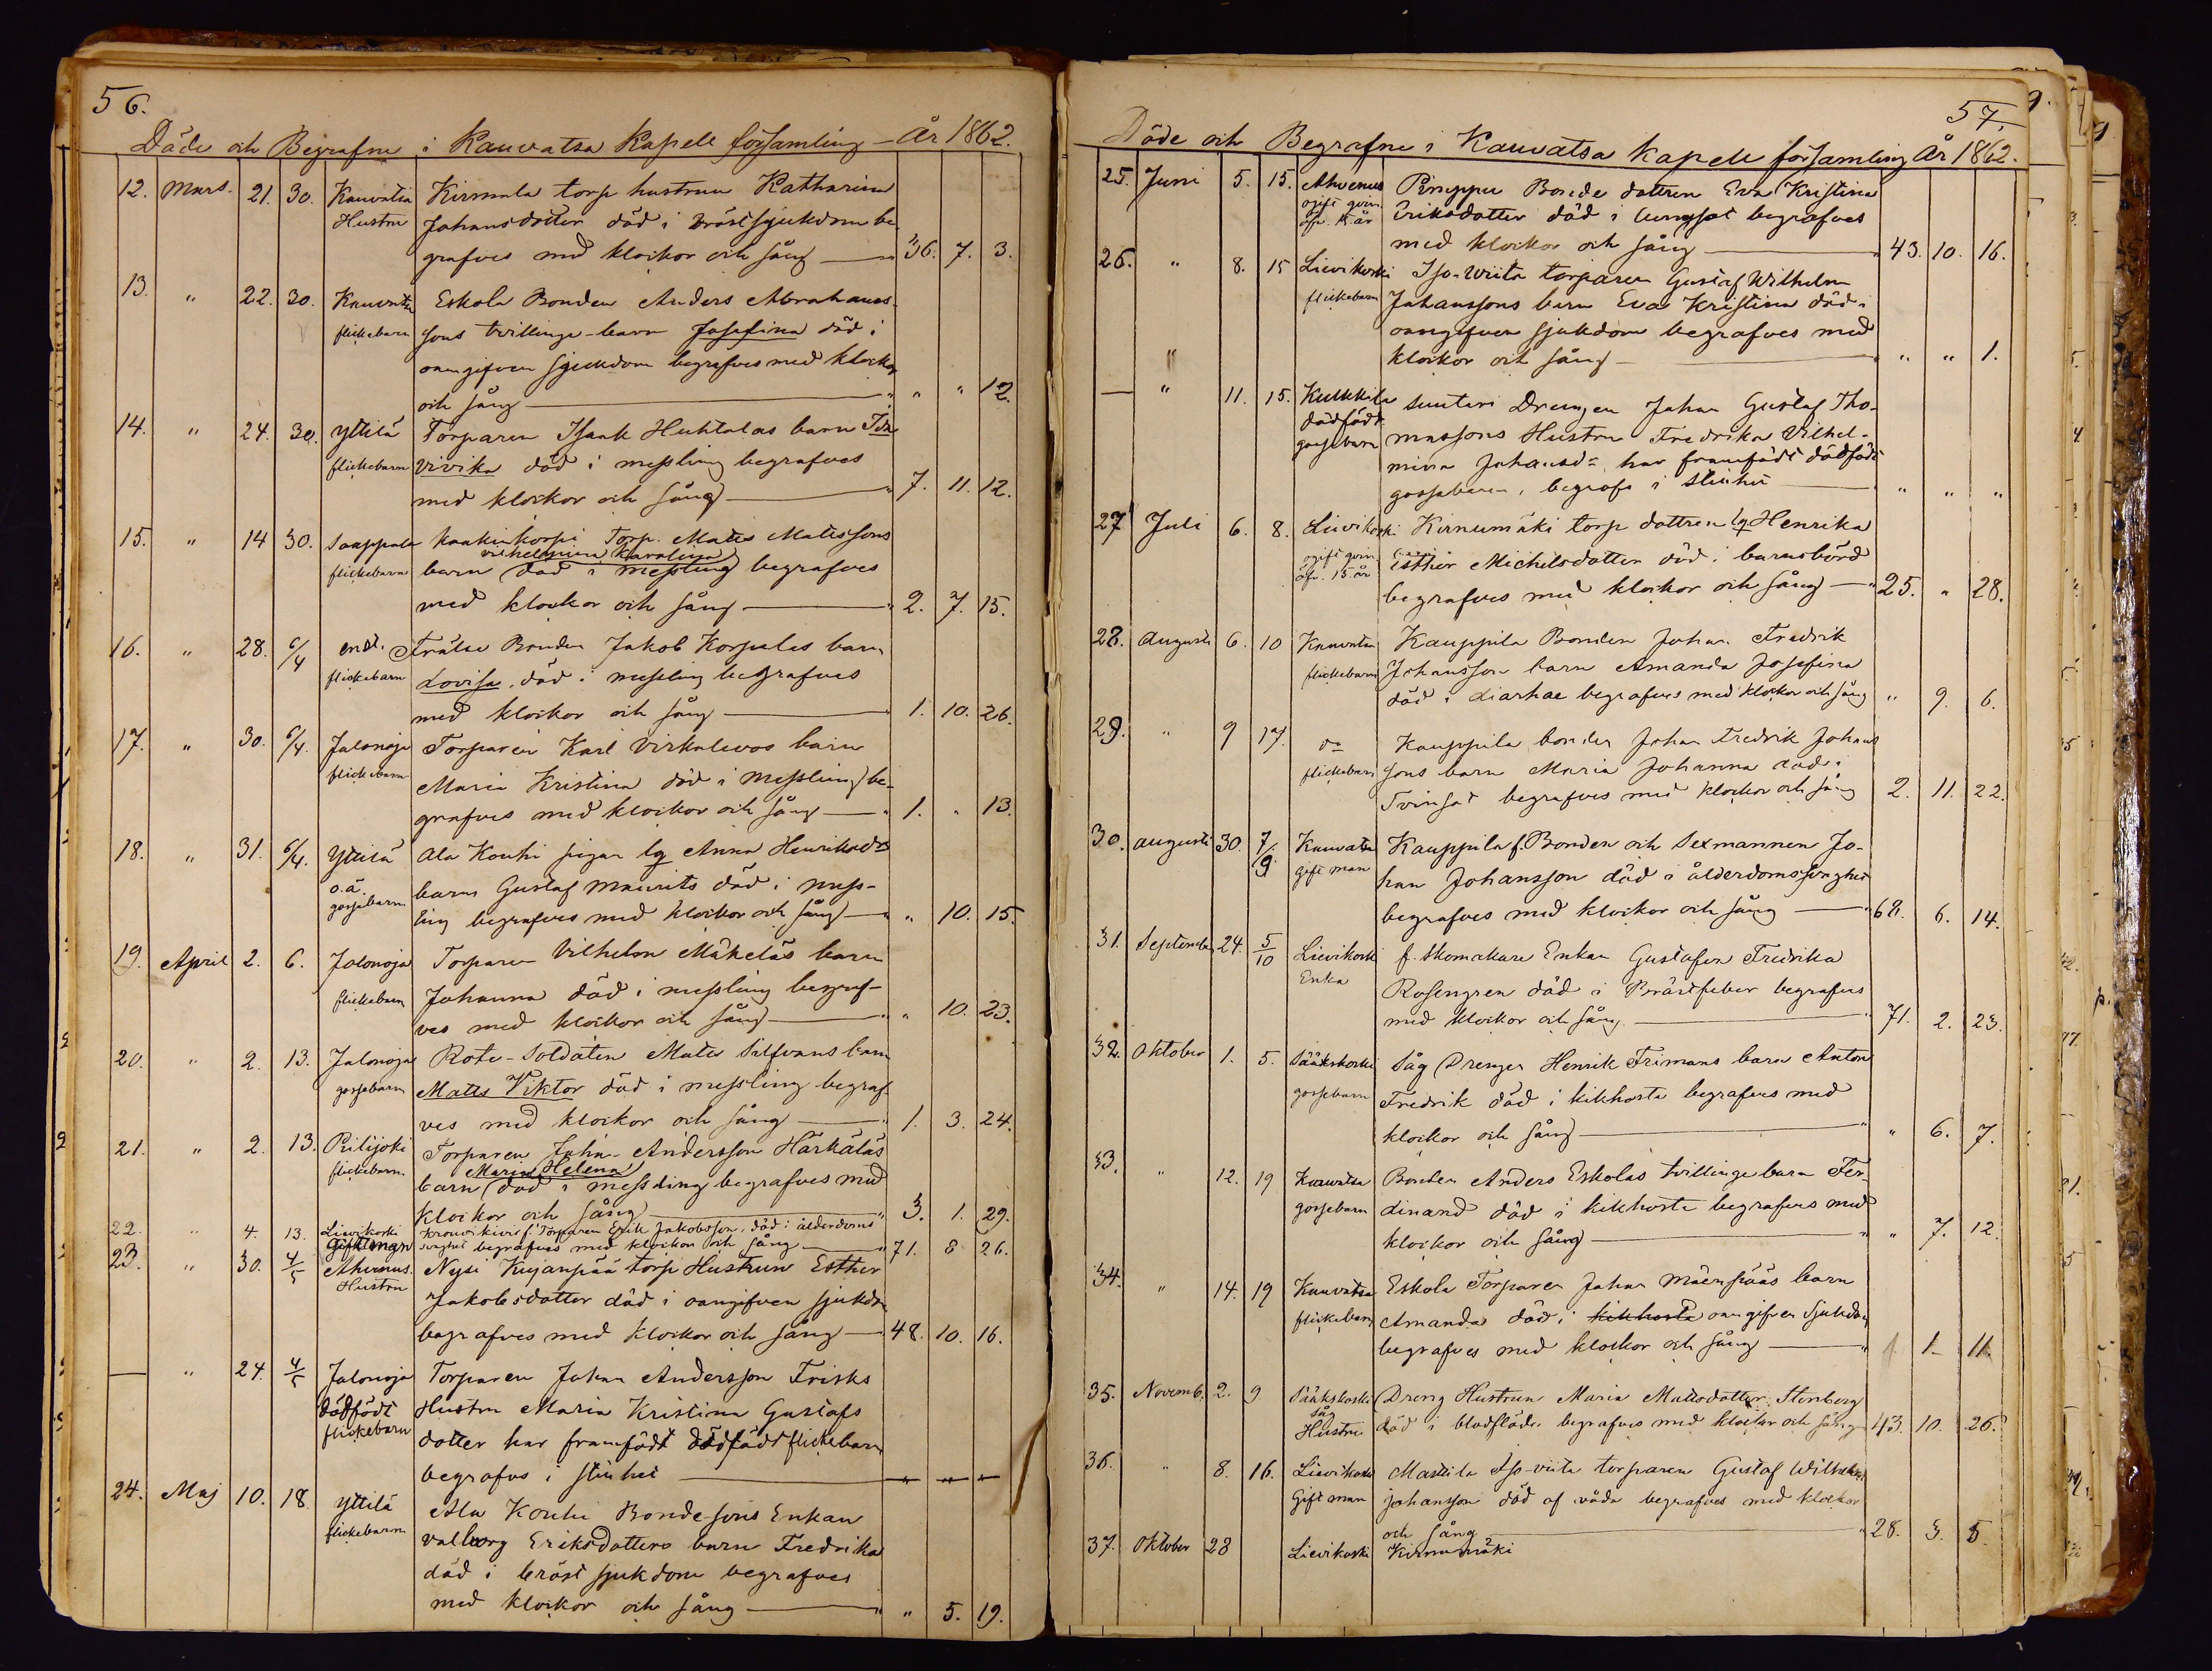 56.
Döde och Begrafne i Kauvatsa Kapell församling - År 1862.
12. Mars. 21. 30. Kauvatsa Kirmula torp hustrun Katharina
Hustru Johansdotter död i bröstsjukdom be
grafves med klockor och sång — 36. 7. 3.
13. " 22. 30. Kauvatsa Eskola Bonden Anders Abrahams-
flickebarn sons tvillinge-barn Josefina död i
oangifven sjukdom begrafves med klockor
och sång — " " 12.
14. " 24. 30. Yttilä Torparen Isaak Huhtalas barn Ida
flickebarn Vivika död i messling begrafves
med klockor och sång — 7. 11. 12.
15. " 14 30. Sauppala Kaakinkorpi Torp. Matts Matissons
flickebarn barn Vilhelmina Karolina död i messling begrafves
med klockor och sång — 2. 7. 15.
16. " 28. 6/4 enst. Frälse Bonden Jakob Korpelas barn
flickebarn Lovisa, död i messling begrafves
med klockor och sång — 1. 10. 26.
17. " 30. 6/4. Jalonoja Torparen Karl Virkalevos barn
flickebarn Maria Kristina död i messling be-
grafves med klockor och sång — 1. " 13.
18. " 31. 6/4. Yttilä Ala Kouhi pigan lg Anna Henriksdr
o.ä. gossebarn barn Gustaf Maurits död i mess-
ling begrafves med klockor och sång — " 10. 15.
19. April 2. 6. Jalonoja Torparen Vilhelm Mäkeläs barn
flickebarn Johanna död i messling begraf-
ves med klockor och sång — " 10. 23.
20. " 2. 13. Jalonoja Rote-Soldaten Matts Silfvans barn
gossebarn Matts Viktor död i messling begraf-
ves med klockor och sång — 1. 3. 24.
21. " 2. 13. Piilijoki Torparen Johan Andersson Härkäläs
flickebarn barn Maria Helena död i messling begrafves med
klockor och sång — 3. 1. 29.
22. " 4. 13. Lievikoski f. Torparen Erik Jakobsson, död i ålderdoms
Gift man svaghet begrafves med klockor och sång — 71. 8 26.
23. " 30. 4/5 Ahvenus Nysi Kujanpää torp Hustrun Esther
Hustru Jakobsdotter död i oangifven sjukdom
begrafves med klockor och sång — 48. 10. 16.
— " 24. 4/5 Jalonoja Torparen Johan Andersson Frisks
dödfödt Hustru Maria Kristina Gustafs
flickebarn dotter har framfödt dödfödt flickebarn
begrafvs i stillhet — " " "
24. Maj 10. 18. Yttilä Ala Kouhi Bondesons Enkan
flickebarn Valborg Eriksdotters barn Fredrika
död i bröst sjukdom begrafves
med klockor och sång — " 5. 19.
57.
Döde och Begrafne i Kauvatsa Kapell församling År 1862.
25. Juni 5. 15. Ahvenus Pimppu Bonde dottren Eva Kristina
ogift qvin. öfv. 15 år Eriksdotter död i lungsot begrafves
med klockor och sång — 43. 10. 16.
26. " 8. 15 Lievikoski Iso-Wiita torparen Gustaf Wilhelm
flickebarn Johanssons barn Eva Kristina död i
oangifven sjukdom begrafves med
klockor och sång — " " 1.
— " 11. 15. Kulkkila Suutari Drengen Johan Gustaf Tho-
dödfödt gossebarn massons Hustru Fredrika Vilhel-
mina Johansdr har framfödt dödfödt
gossebarn, begrafs i stillhet — " " "
27 Juli 6. 8. Lievikoski Kirnumäki torp dottren lg Henrika
ogift qvin. öfv. 15 år Esther Michelsdotter död i barnsbörd
begrafves med klockor och sång — 25. " 28.
28. Augusti 6. 10 Kauvatsa Kauppila Bonden Johan Fredrik
flickebarn Johansson barn Amanda Josefina
död i diarhae begrafves med klockor och sång " 9. 6.
29. " 9 17. do Kauppila bonden Johan Fredrik Johans
flickebarn sons barn Maria Johanna död i
Tvinsot begrafves med klockor och sång 2. 11. 22.
30. Augusti 30. 7/9. Kauvatsa Kauppila f. Bonden och Sexmannen Jo-
gift man han Johansson död i ålderdomssvaghet
begrafves med klockor och sång — 68. 6. 14.
31. September 24. 5/10 Lievikoski f. Skomakare Enkan Gustafva Fredrika
Enka Rosengren död i Bröstfeber begrafves
med klockor och sång — 71. 2. 23.
32. Oktober 1. 5. Sääkskoski Såg Drengen Henrik Frimans barn Anton
gossebarn Fredrik död i kikhosta begrafves med
klockor och sång — " 6. 7.
33. " 12. 19 Kauvatsa Bonden Anders Eskolas tvillinge barn Fer-
gossebarn dinand död i kikhosta begrafves med
klockor och sång — " 7. 12
34. " 14. 19 Kauvatsa Eskola Torparen Johan Mäenpääs barn
flickebarn Amanda död i kikhosta oangifven sjukdom
begrafves med klockor och sång — 1. 11.
35. Novemb. 2. 9 Sääkskoski Dreng Hustrun Maria Mattsdotter Stenberg
såg Hustru död i blodflöde begrafves med klockor och sång 43. 10. 26.
36. " 8. 16. Lievikoski Mattila Iso-viita torparen Gustaf Wilhelm
Gift man Johansson död af våda begrafves med klockor
och sång — 28. 3. 5.
37. Oktober 28 Lievikoski Kirnumäki